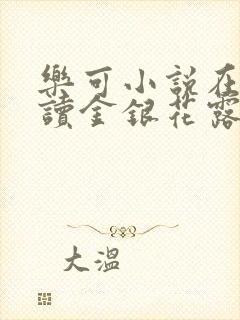 樂可小說在
讀金銀花露
大溫